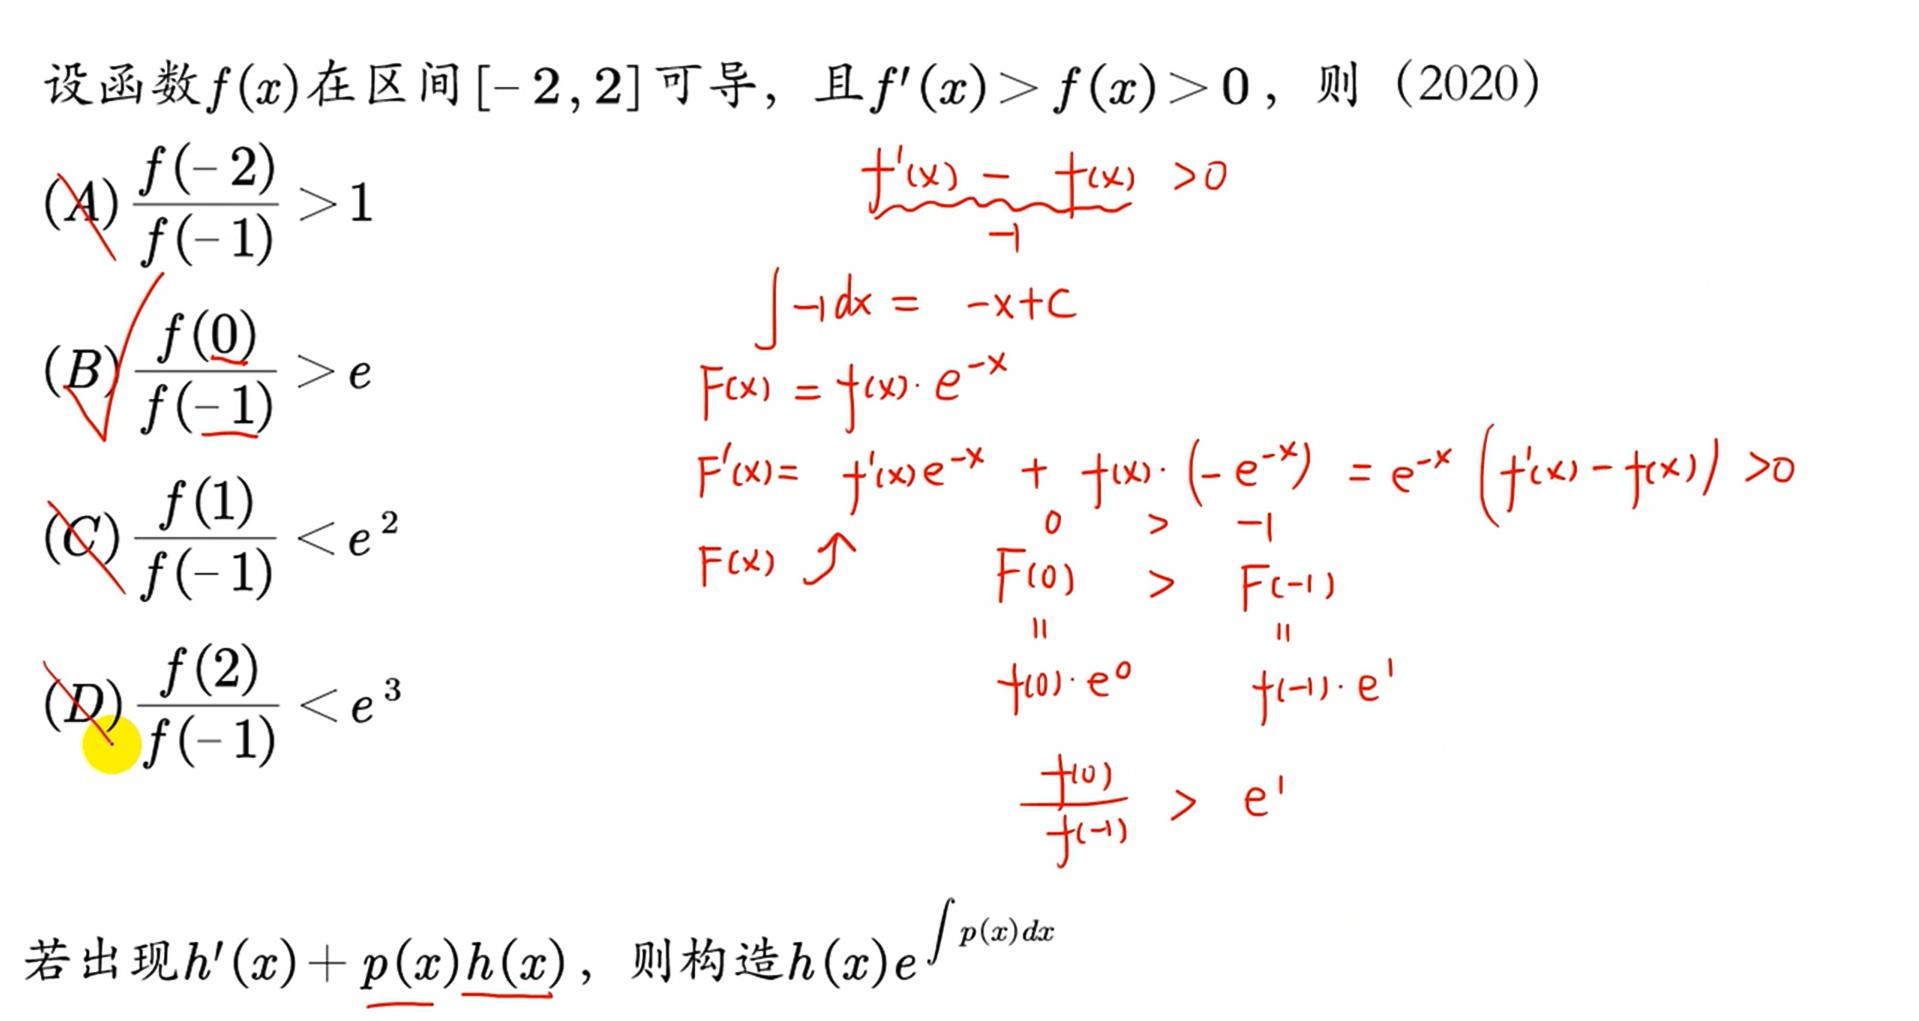 设函数f(x)在区间[-2,2]可导，且f'(x)>f(x)>0，则（2020）
(A) f(-2)/f(-1) >1
(B) f(0)/f(-1) >e
(C) f(1)/f(-1) <e^2
(D) f(2)/f(-1) <e^3
f'(x) - f(x) >0
-1
∫-1dx = -x+C
F(x) = f(x)·e^-x
F'(x)= f'(x)e^-x + f(x)·(-e^-x) = e^-x (f'(x)-f(x)) >0
0 > -1
F(x) ↑ F(0) > F(-1)
= =
f(0)·e^0 f(-1)·e^1
f(0)/f(-1) > e^1
若出现h'(x)+p(x)h(x)，则构造h(x)e^∫p(x)dx